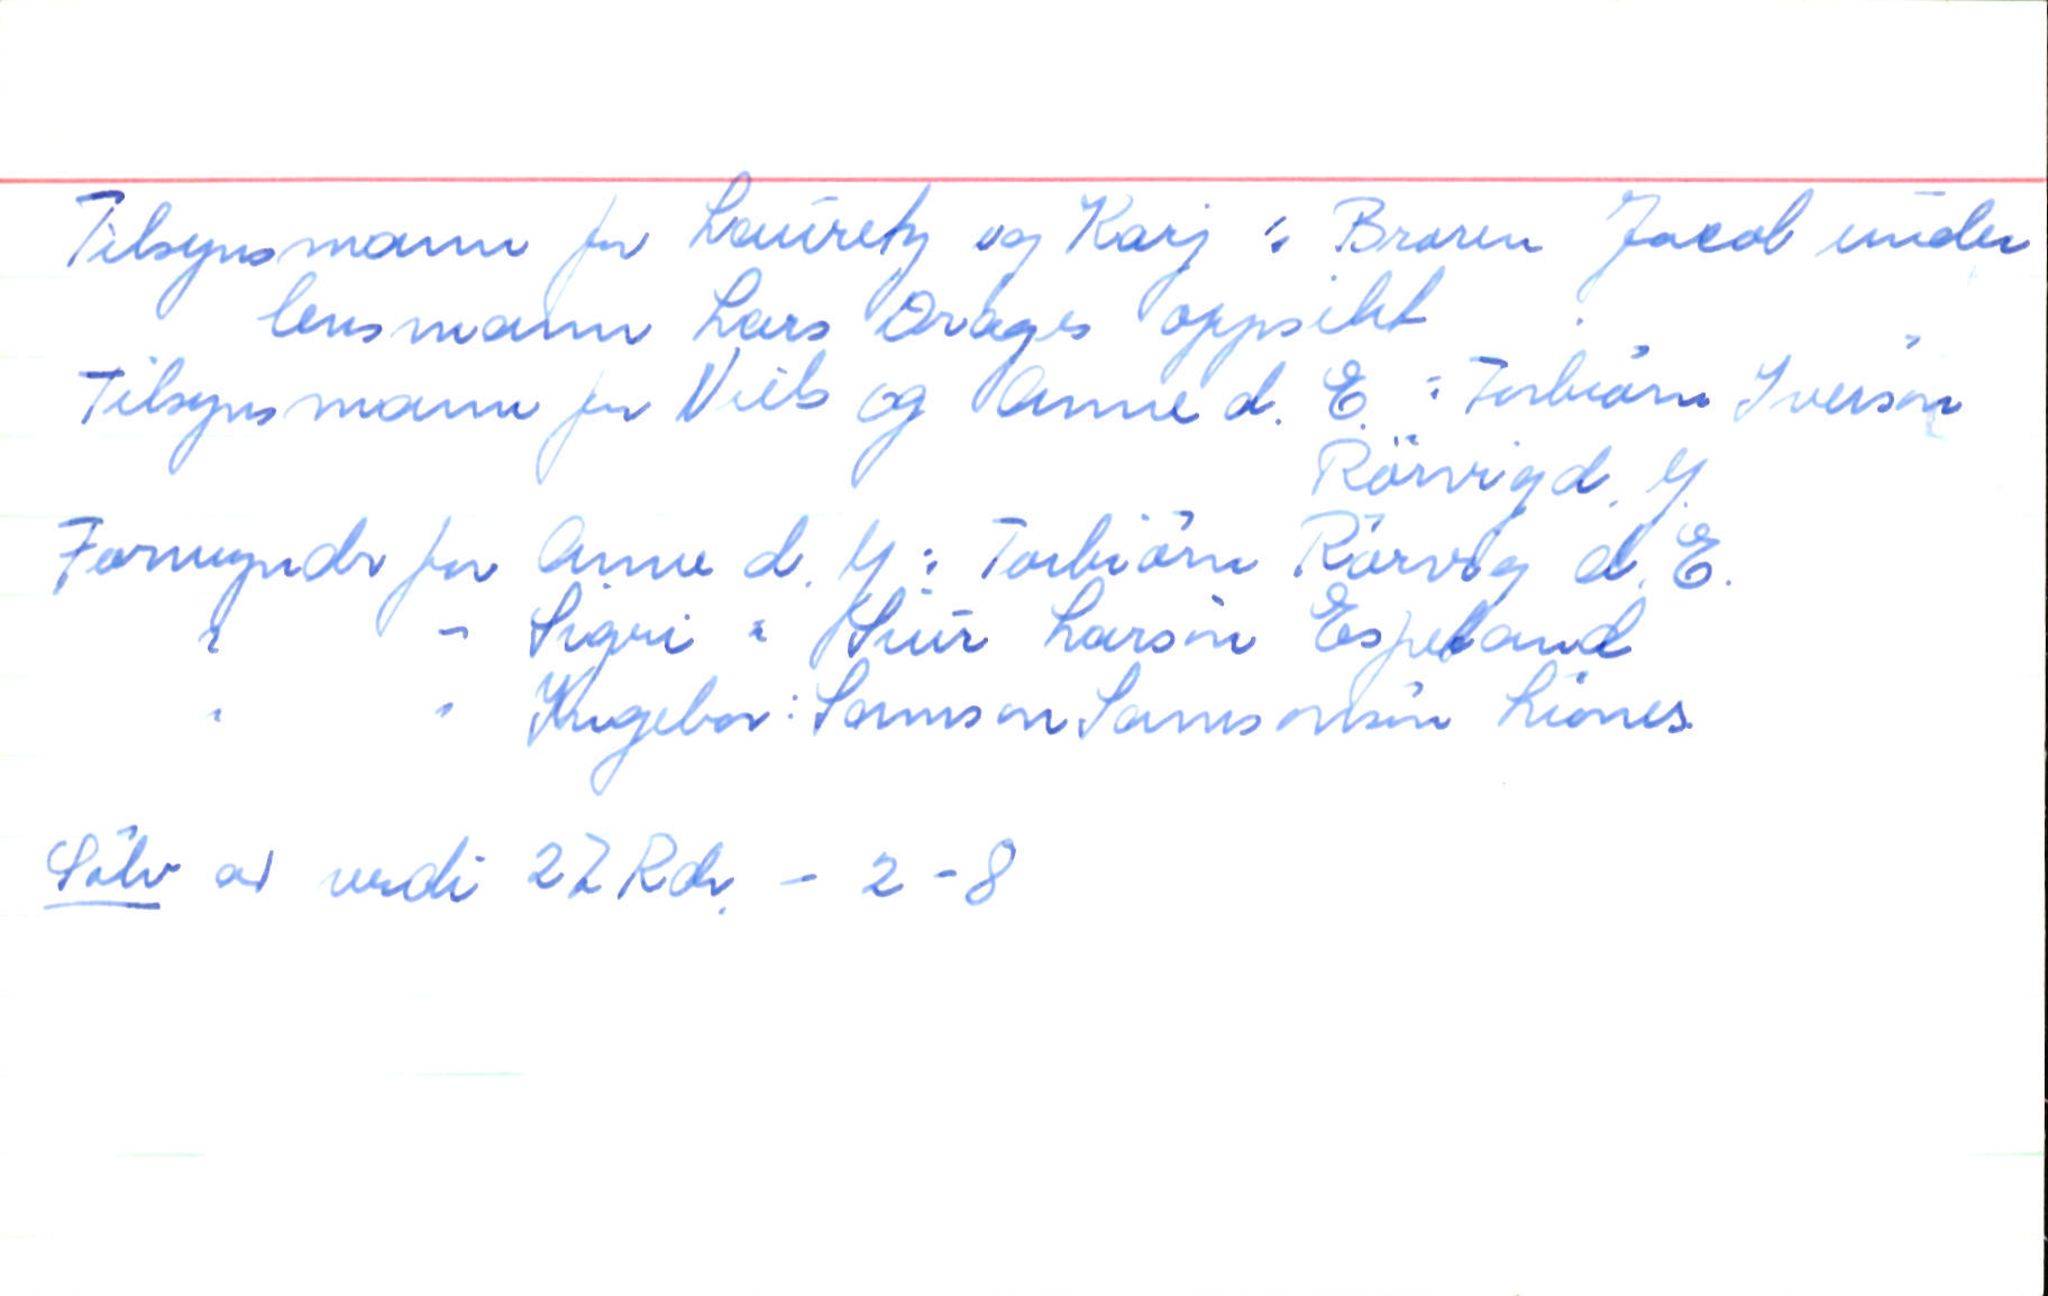 Tilsynsmann for Lauretz og Karj : Broren Jacob under
lensmann Lars Drages oppsikt
Tilsynsmann for Niels og Anne d. E. : Torbiørn Iversøn
Rörvig d. Y.
Formyndr for Anne d. Y. : Torbiörn Rörvig d. E.
" " Sigri : Siur Larsön Espeland
" " Ingebor : Samson Samsonsön Liones.
Sölv av verdi 27 Rdr. - 2 - 8